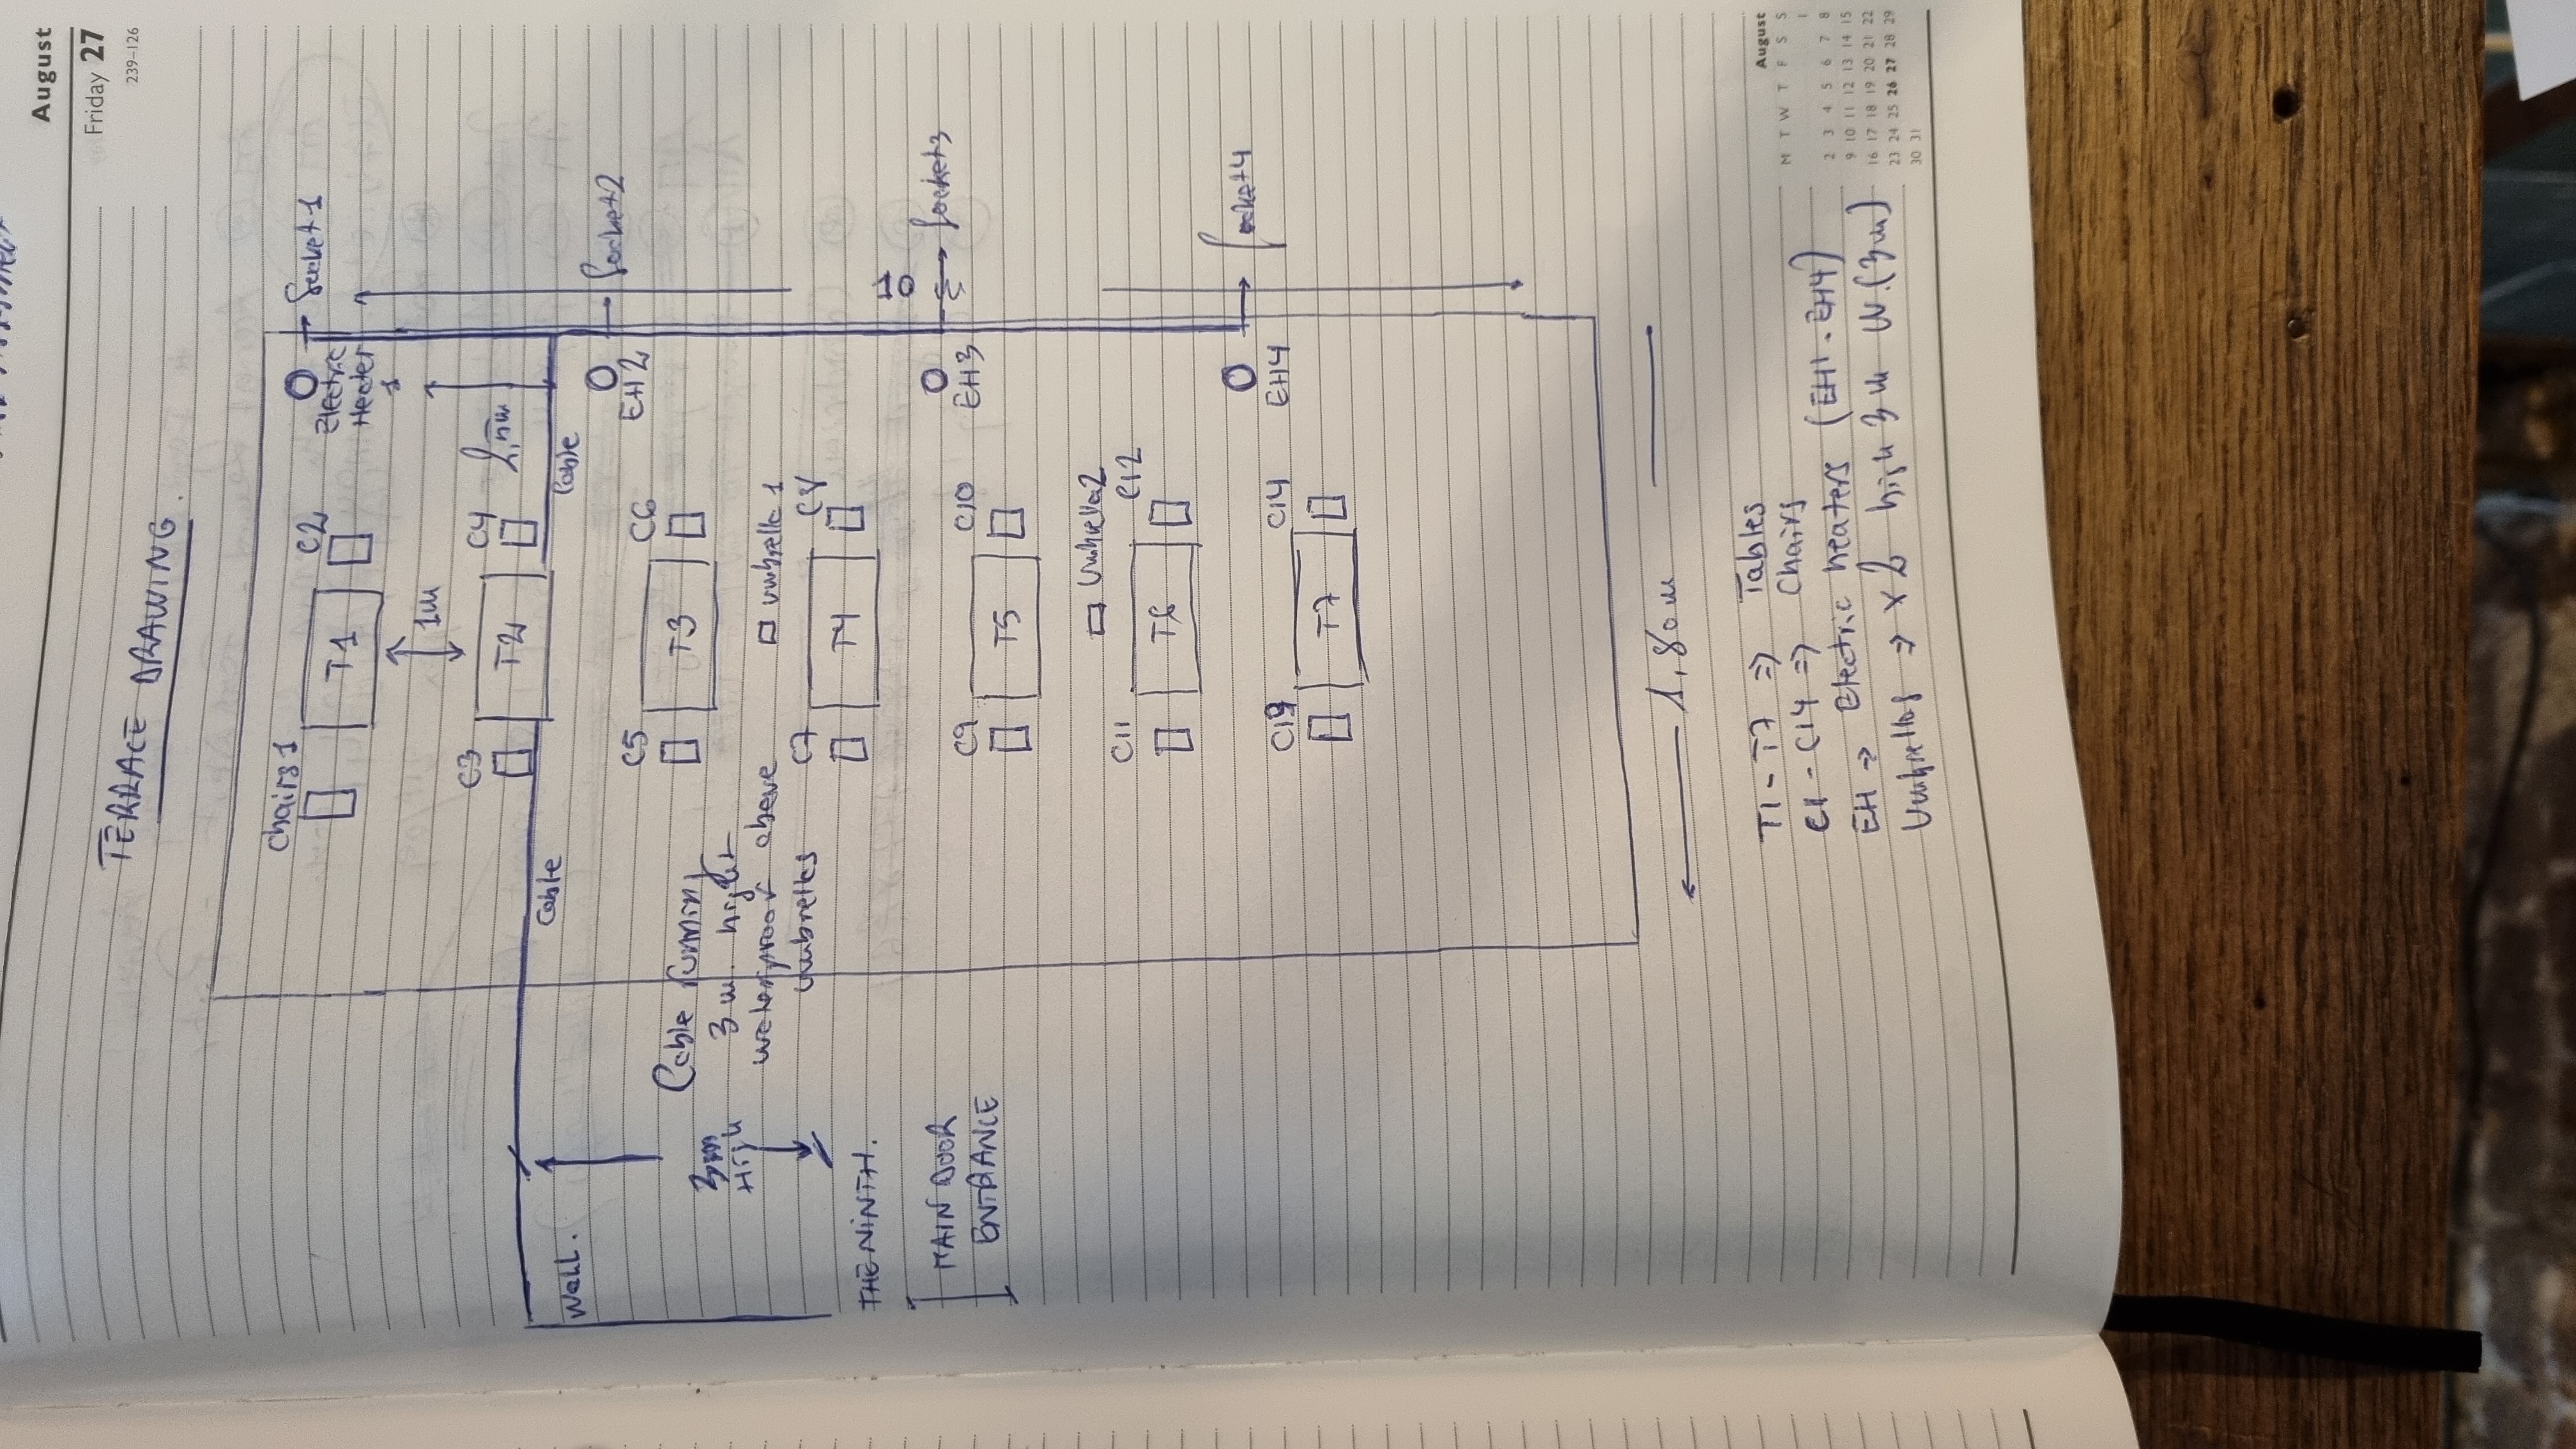 August
Friday 27
239-126
TERRACE DRAWING.
Chairs1
T1
C2
Electric
Heater
1
Socket1
1m
C3
T2
C4
Cable
Cable
C5
T3
C6
EH2
Socket2
Cable running
3m. hight
waterproof above
umbrelles
umbrelle 1
C7
T4
C8
Wall.
3m
High
THE NINTH.
MAIN DOOR
ENTRANCE
C9
T5
C10
EH3
Socket3
Umbrella2
C11
T6
C12
T7
C14
EH4
Socket4
1,80m
T1 - T7 => Tables
C1 - C14 => Chairs
EH => Electric heaters (EH1 - EH4)
Umbrellas => x2 high 3m W.(3m)
August
M T W T F S S
1
2 3 4 5 6 7 8
9 10 11 12 13 14 15
16 17 18 19 20 21 22
23 24 25 26 27 28 29
30 31